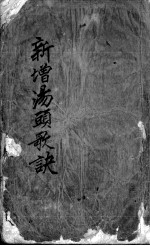 新增湯頭歌訣